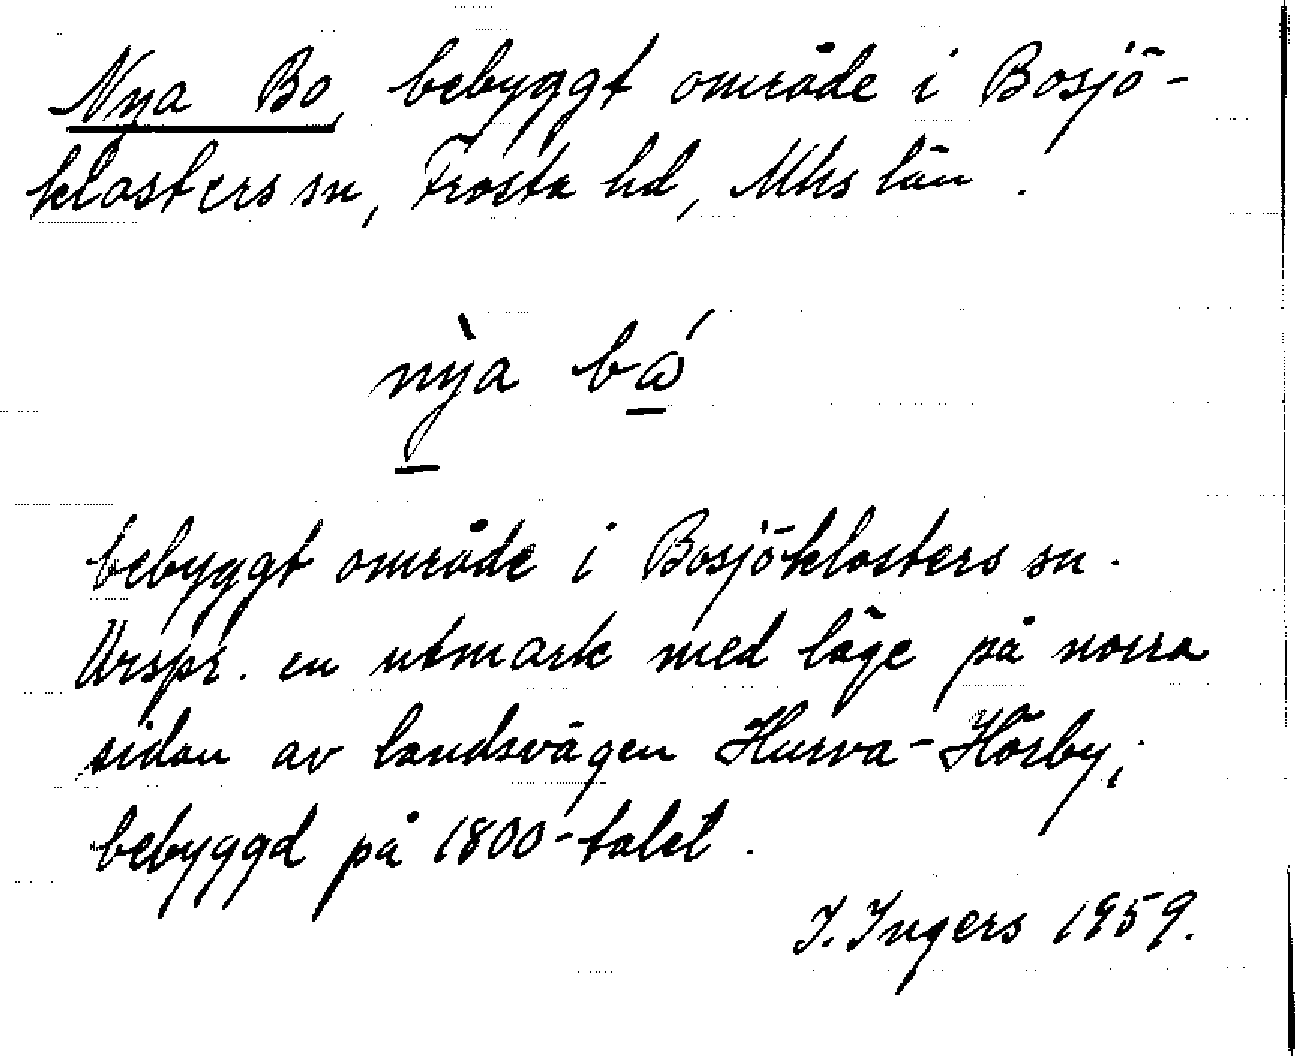 Nya Bo, bebyggt område i Bosjö-
klosters sn, Frosta hd, Mhs län.
nỳa bɷ́
bebyggt område i Bosjöklosters sn.
Urspr. en utmark med läge på norra
sidan av landsvägen Hurva-Hörby;
bebyggd på 1800-talet.
I. Ingers 1959.